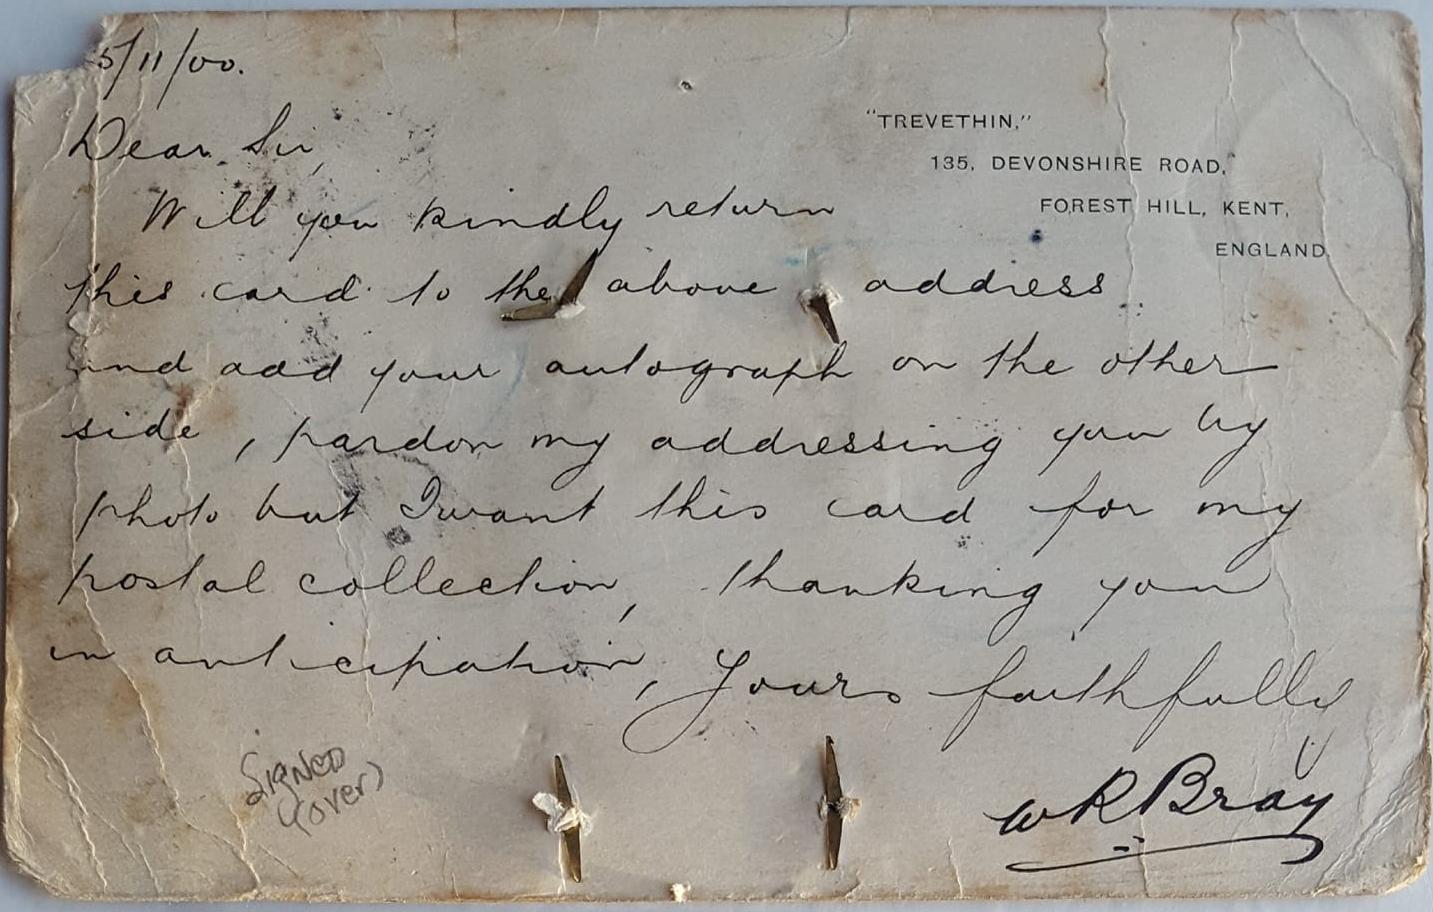 5/11/00.
Dear Sir,
"TREVETHIN,"
135, DEVONSHIRE ROAD,
FOREST HILL, KENT,
ENGLAND
Will you kindly return
this card to the above address
and add your autograph on the other
side, pardon my addressing you by
photo but I want this card for my
postal collection, thanking you
in anticipation, Yours faithfully
W R Bray
SIGNED
(over)